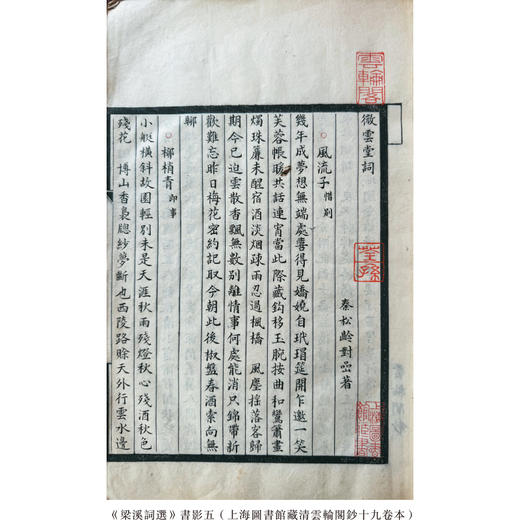 雲輪閣
微雲堂詞
荃孫
秦松齡對嵒著
上海圖書館藏書
風流子 惜別
幾年成夢想無端處喜得見嬌嬈自玳瑁筵開乍邀一笑
芙蓉帳暖共話連宵當此際藏鈎移玉腕按曲和鸞簫畫
燭珠簾未醒宿酒淡烟疎雨忍過楓橋 風塵搖落客歸
期今已迫雲散香飄無數別離情事何處能消只錦帶新
歡難忘昨日梅花密約記取今朝此後椒盤春酒索向無
聊
柳梢青 即事
小艇橫斜故園輕別未是天涯秋雨殘燈秋心殘酒秋色
殘花 博山香裊牕紗夢斷也西陵路賒天外行雲水邊
《梁溪詞選》書影五（上海圖書館藏清雲輪閣鈔十九卷本）